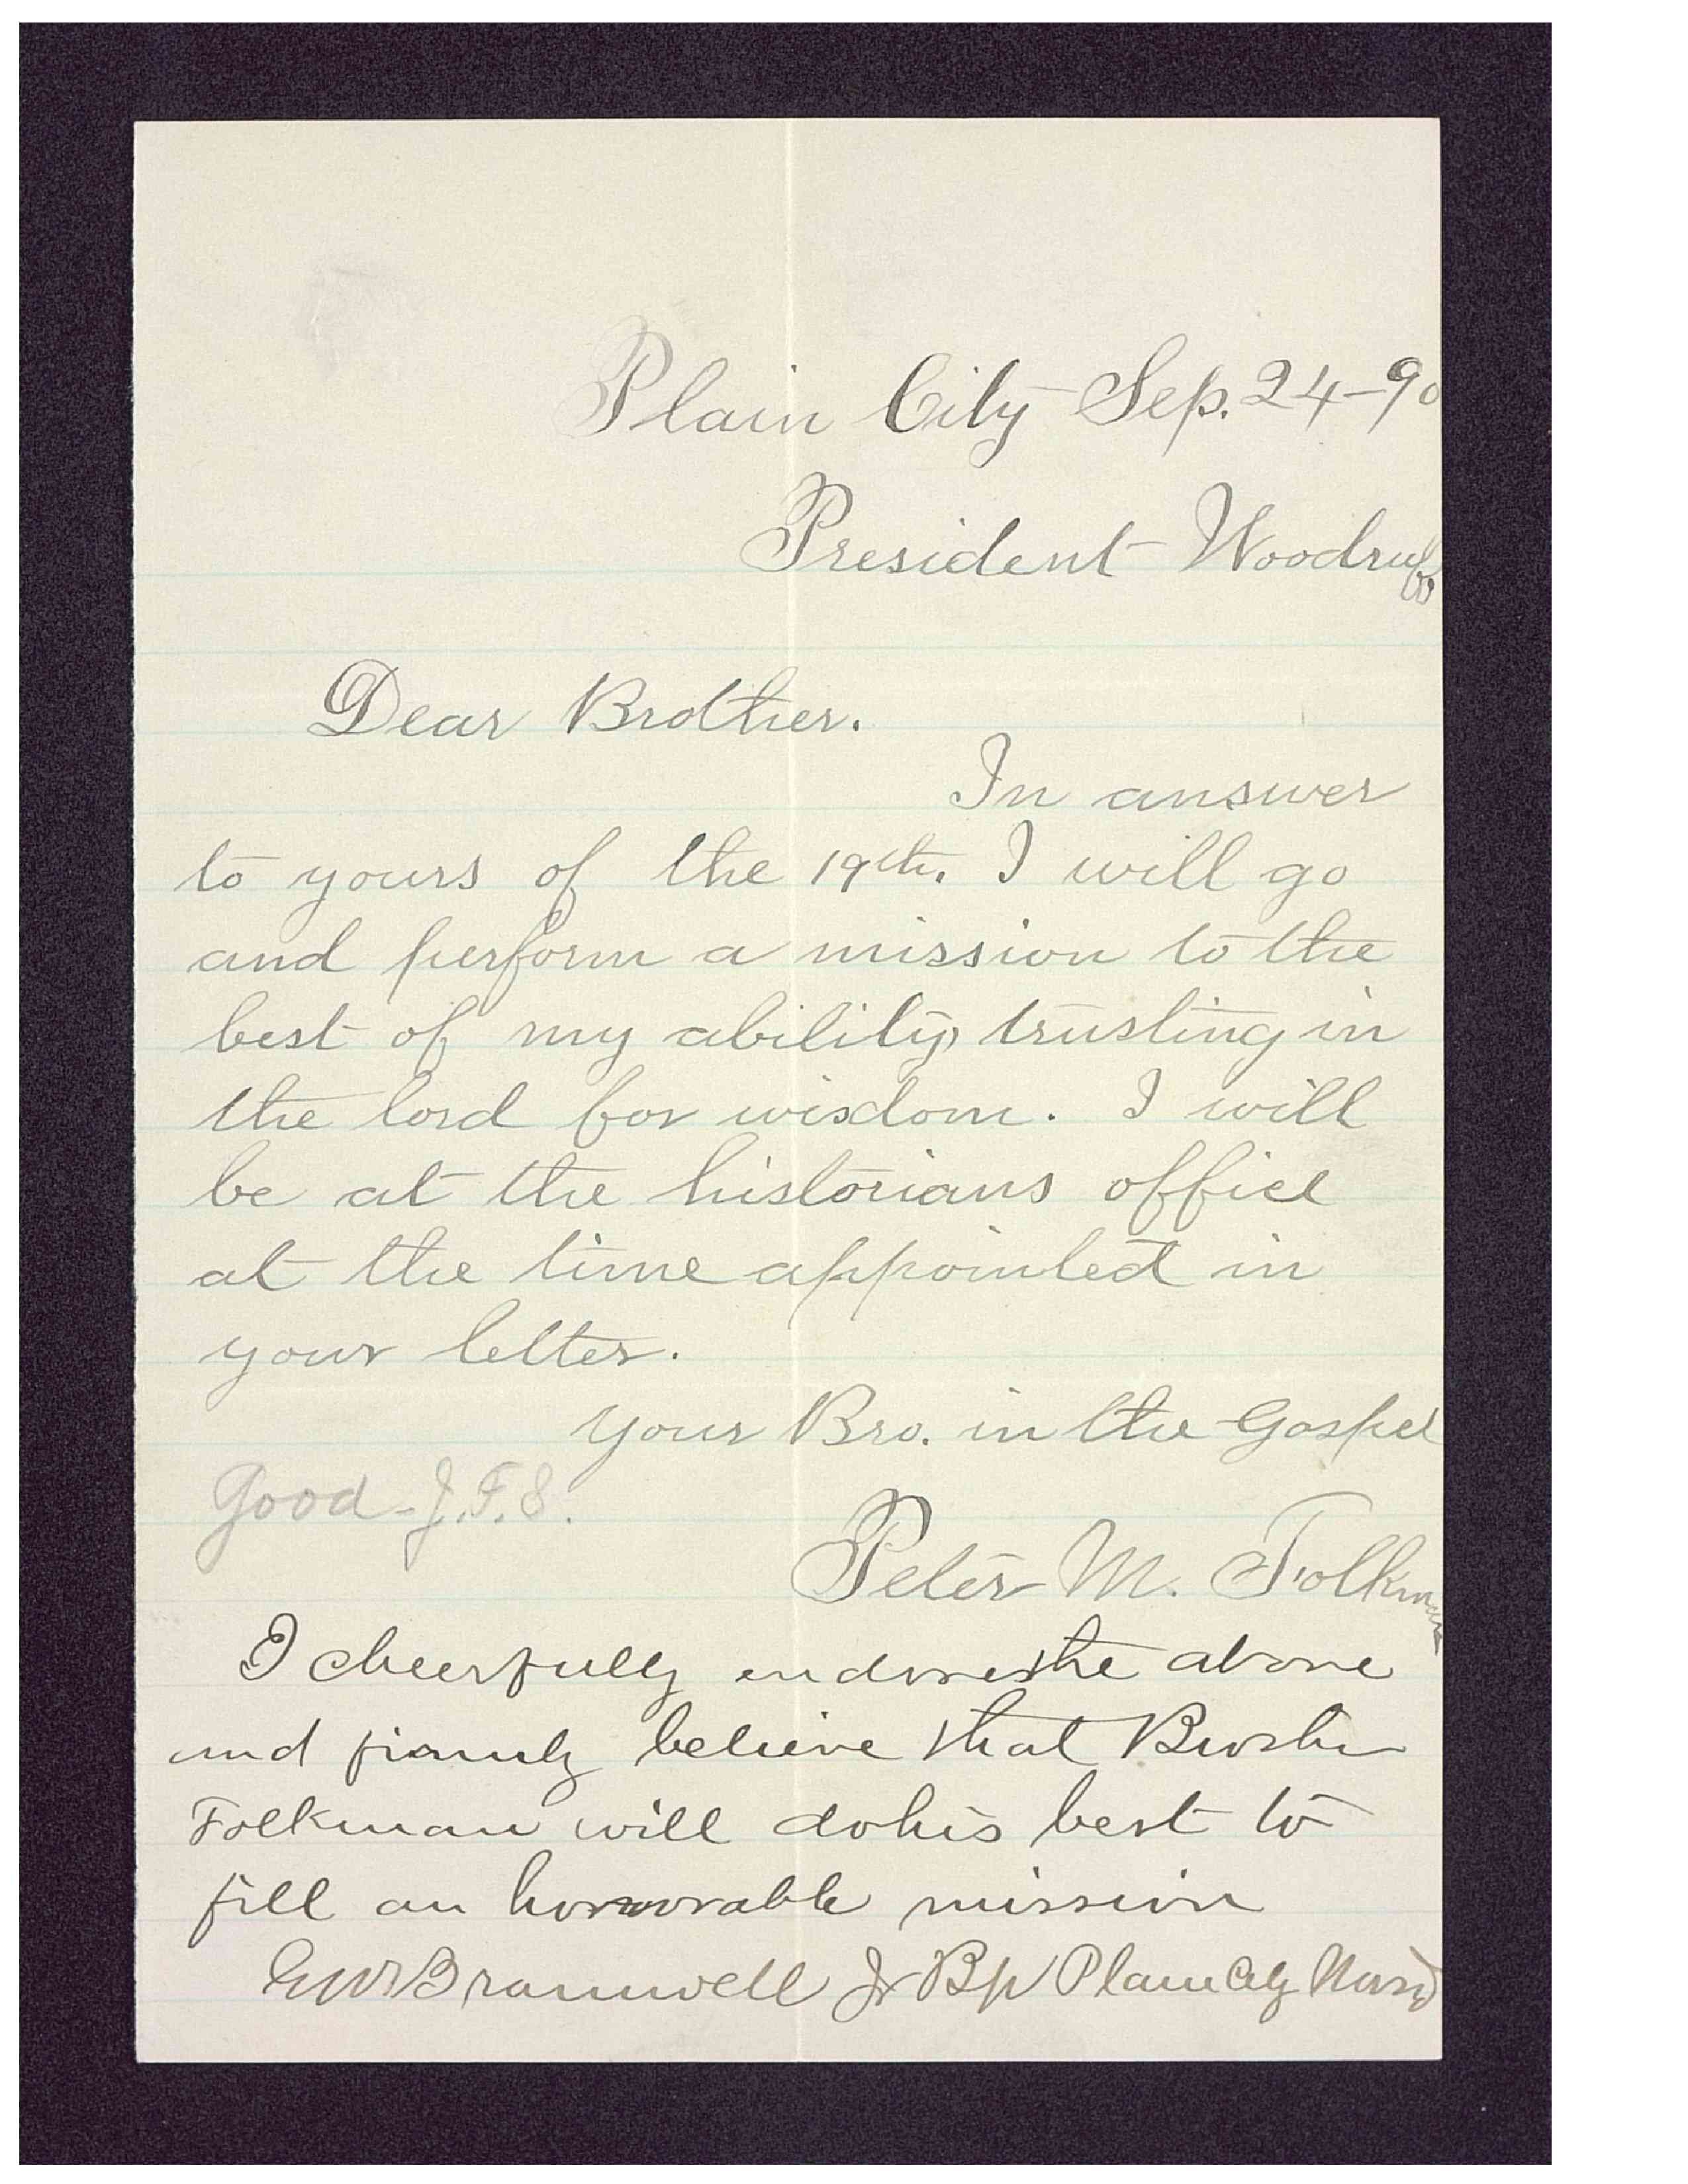 Plain City Sep. 24-90
President Woodruff
Dear Brother.
In answer
to yours of the 19th. I will go
and perform a mission to the
best of my ability, trusting in
the lord for wisdom. I will
be at the historians office
at the time appointed in
your letter.
your Bro. in the Gospel
Good-J.F.S.
Peter M. Folkman
I cheerfully endorse the above
and firmly believe that Brother
Folkman will do his best to
fill an honorable mission
G W Bramwell Jr Bp Plain City Ward